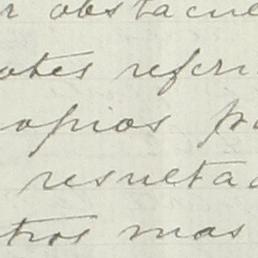 r obstacul
otes referi
opios pa
resultad
tros mas